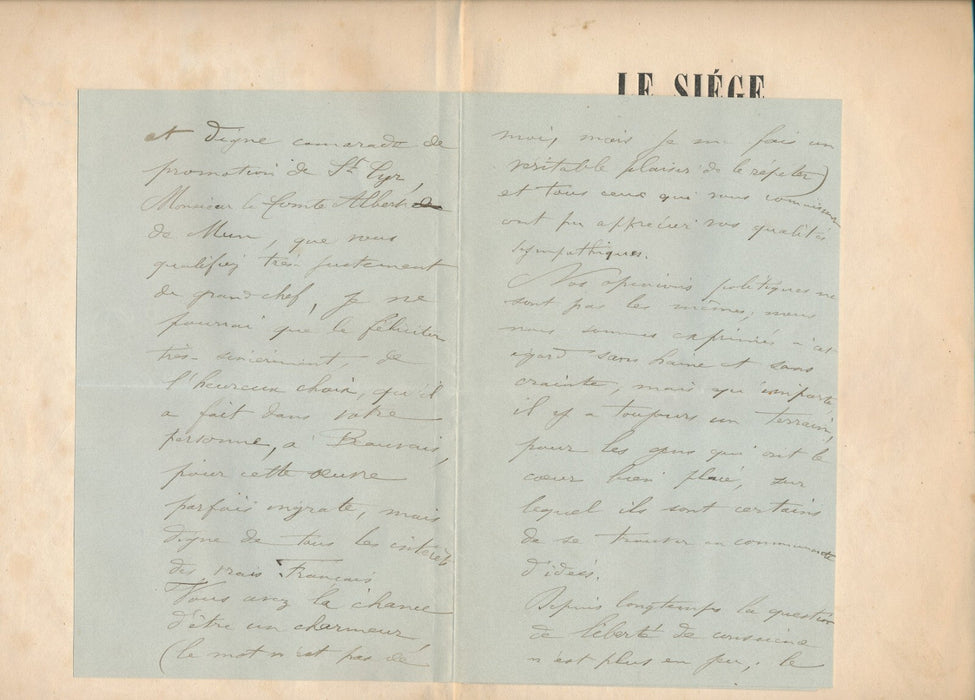 LE SIÉGE
et digne camarade de
promotion de St Cyr,
Monsieur le Comte Albert de
de Mun, que vous
qualifiez très justement
de grand chef, je ne
pourrai que le féliciter
très sincèrement, de
l'heureux choix, qu'il
a fait dans votre
personne, à Beauvais,
pour cette œuvre
parfois ingrate, mais
digne de tous les intérêts
des vrais Français
Vous avez la chance
d'être un charmeur,
(le mot n'est pas de
moi, mais je me fais un
véritable plaisir de le répéter)
et tous ceux qui vous connaissent
ont pu apprécier vos qualités
sympathiques.
Nos opinions politiques ne
sont pas les mêmes, nous
nous sommes exprimés à cet
égard sans haine et sans
crainte, mais qu'importe,
il y a toujours un terrain,
pour les gens qui ont le
cœur bien placé, sur
lequel ils sont certains
de se trouver en communauté
d'idées.
Depuis longtemps la question
de liberté de conscience
n'est plus en jeu, le